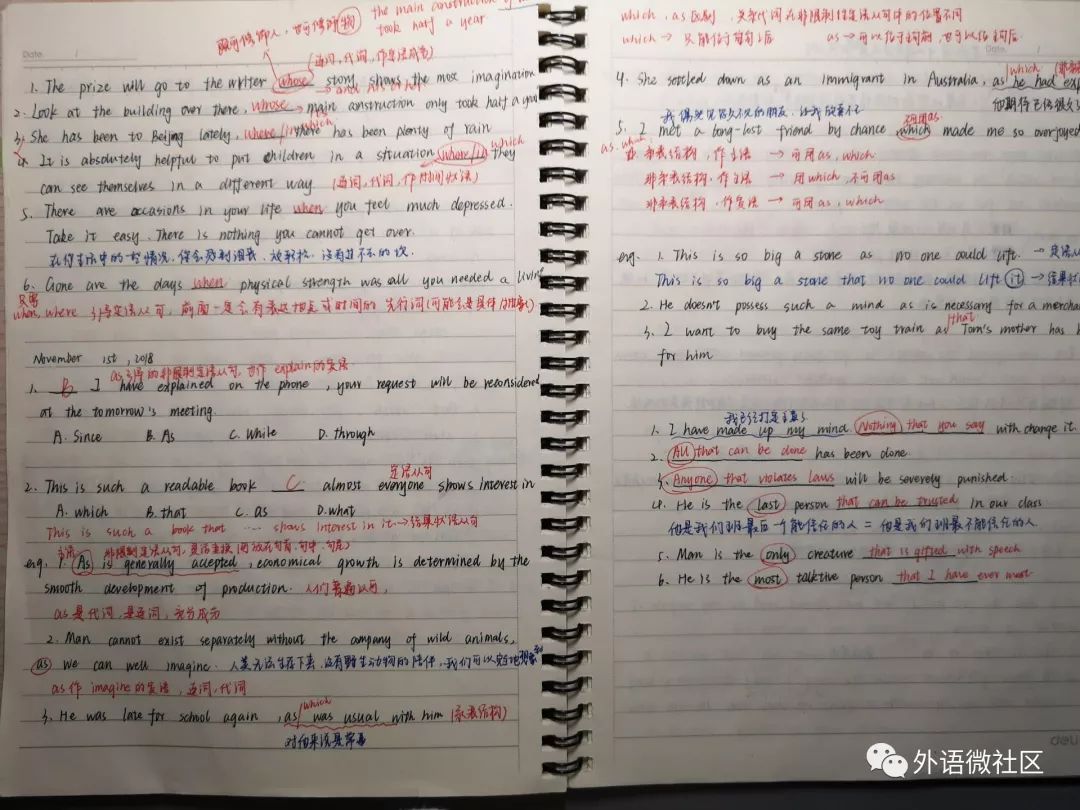 the main construction of
took half a year
既可修饰人，也可修饰物
连词，代词，作定语成分
Date /
1. The prize will go to the writer whose story shows the most imagination
→ and his or her
2. Look at the building over there, whose main construction only took half a year
3. She has been to Beijing lately, where/in which there has been plenty of rain
4. It is absolutely helpful to put children in a situation where/in which they
can see themselves in a different way (连词，代词，作时间状语)
5. There are occasions in your life when you feel much depressed.
Take it easy. There is nothing you cannot get over.
在你生活中的一些情况，你会感到沮丧，放轻松，没有过不去的坎
6. Gone are the days when physical strength was all you needed a living
只要
when, where 引导定语从句，前面一定会有表达地点或时间的先行词
November 1st, 2018
as引导的非限制定语从句，也作explain的宾语
1. B I have explained on the phone, your request will be reconsidered
at the tomorrow's meeting.
A. Since B. As C. While D. through
定语从句
2. This is such a readable book C almost everyone shows interest in
A. which B. that C. as D. what
This is such a book that ... shows interest in it. → 结果状语从句
主语 非限制定语从句
eg. 1. As is generally accepted, economical growth is determined by the
smooth development of production. 人们普遍认可，
as是代词，是连词，充当成分
2. Man cannot exist separately without the company of wild animals,
as we can well imagine. 人类无法生存下来，没有野生动物的陪伴，我们可以
as作imagine的宾语，连词，代词
3. He was late for school again, as/which was usual with him (系表结构)
对他来说是常事
which, as区别，关系代词在非限制定语从句中的位置不同
which → 只能位于主句之后 as → 可以位于主句前，也可以位主句后
Date /
4. She settled down as an immigrant in Australia, as/which he had exp
他期待已
我偶然见
5. I met a long-lost friend by chance which made me so overjoyed
不用as
as, which
系表结构，作主语 → 可用as, which
非系表结构，作主语 → 用which，不可用as
非系表结构，作宾语 → 可用as, which
eg. 1. This is so big a stone as no one could lift. → 定语从
This is so big a stone that no one could lift it → 结果状
2. He doesn't possess such a mind as is necessary for a mercha
3. I want to buy the same toy train as/that Tom's mother has b
for him
我已经打定主意了
1. I have made up my mind. Nothing that you say with change it.
2. All that can be done has been done.
3. Anyone that violates laws will be severely punished.
4. He is the last person that can be trusted in our class
他是我们班最后一个能信任的人 = 他是我们班最不能信任的人
5. Man is the only creature that is gifted with speech
6. He is the most talktive person that I have ever met.
deli
外语微社区